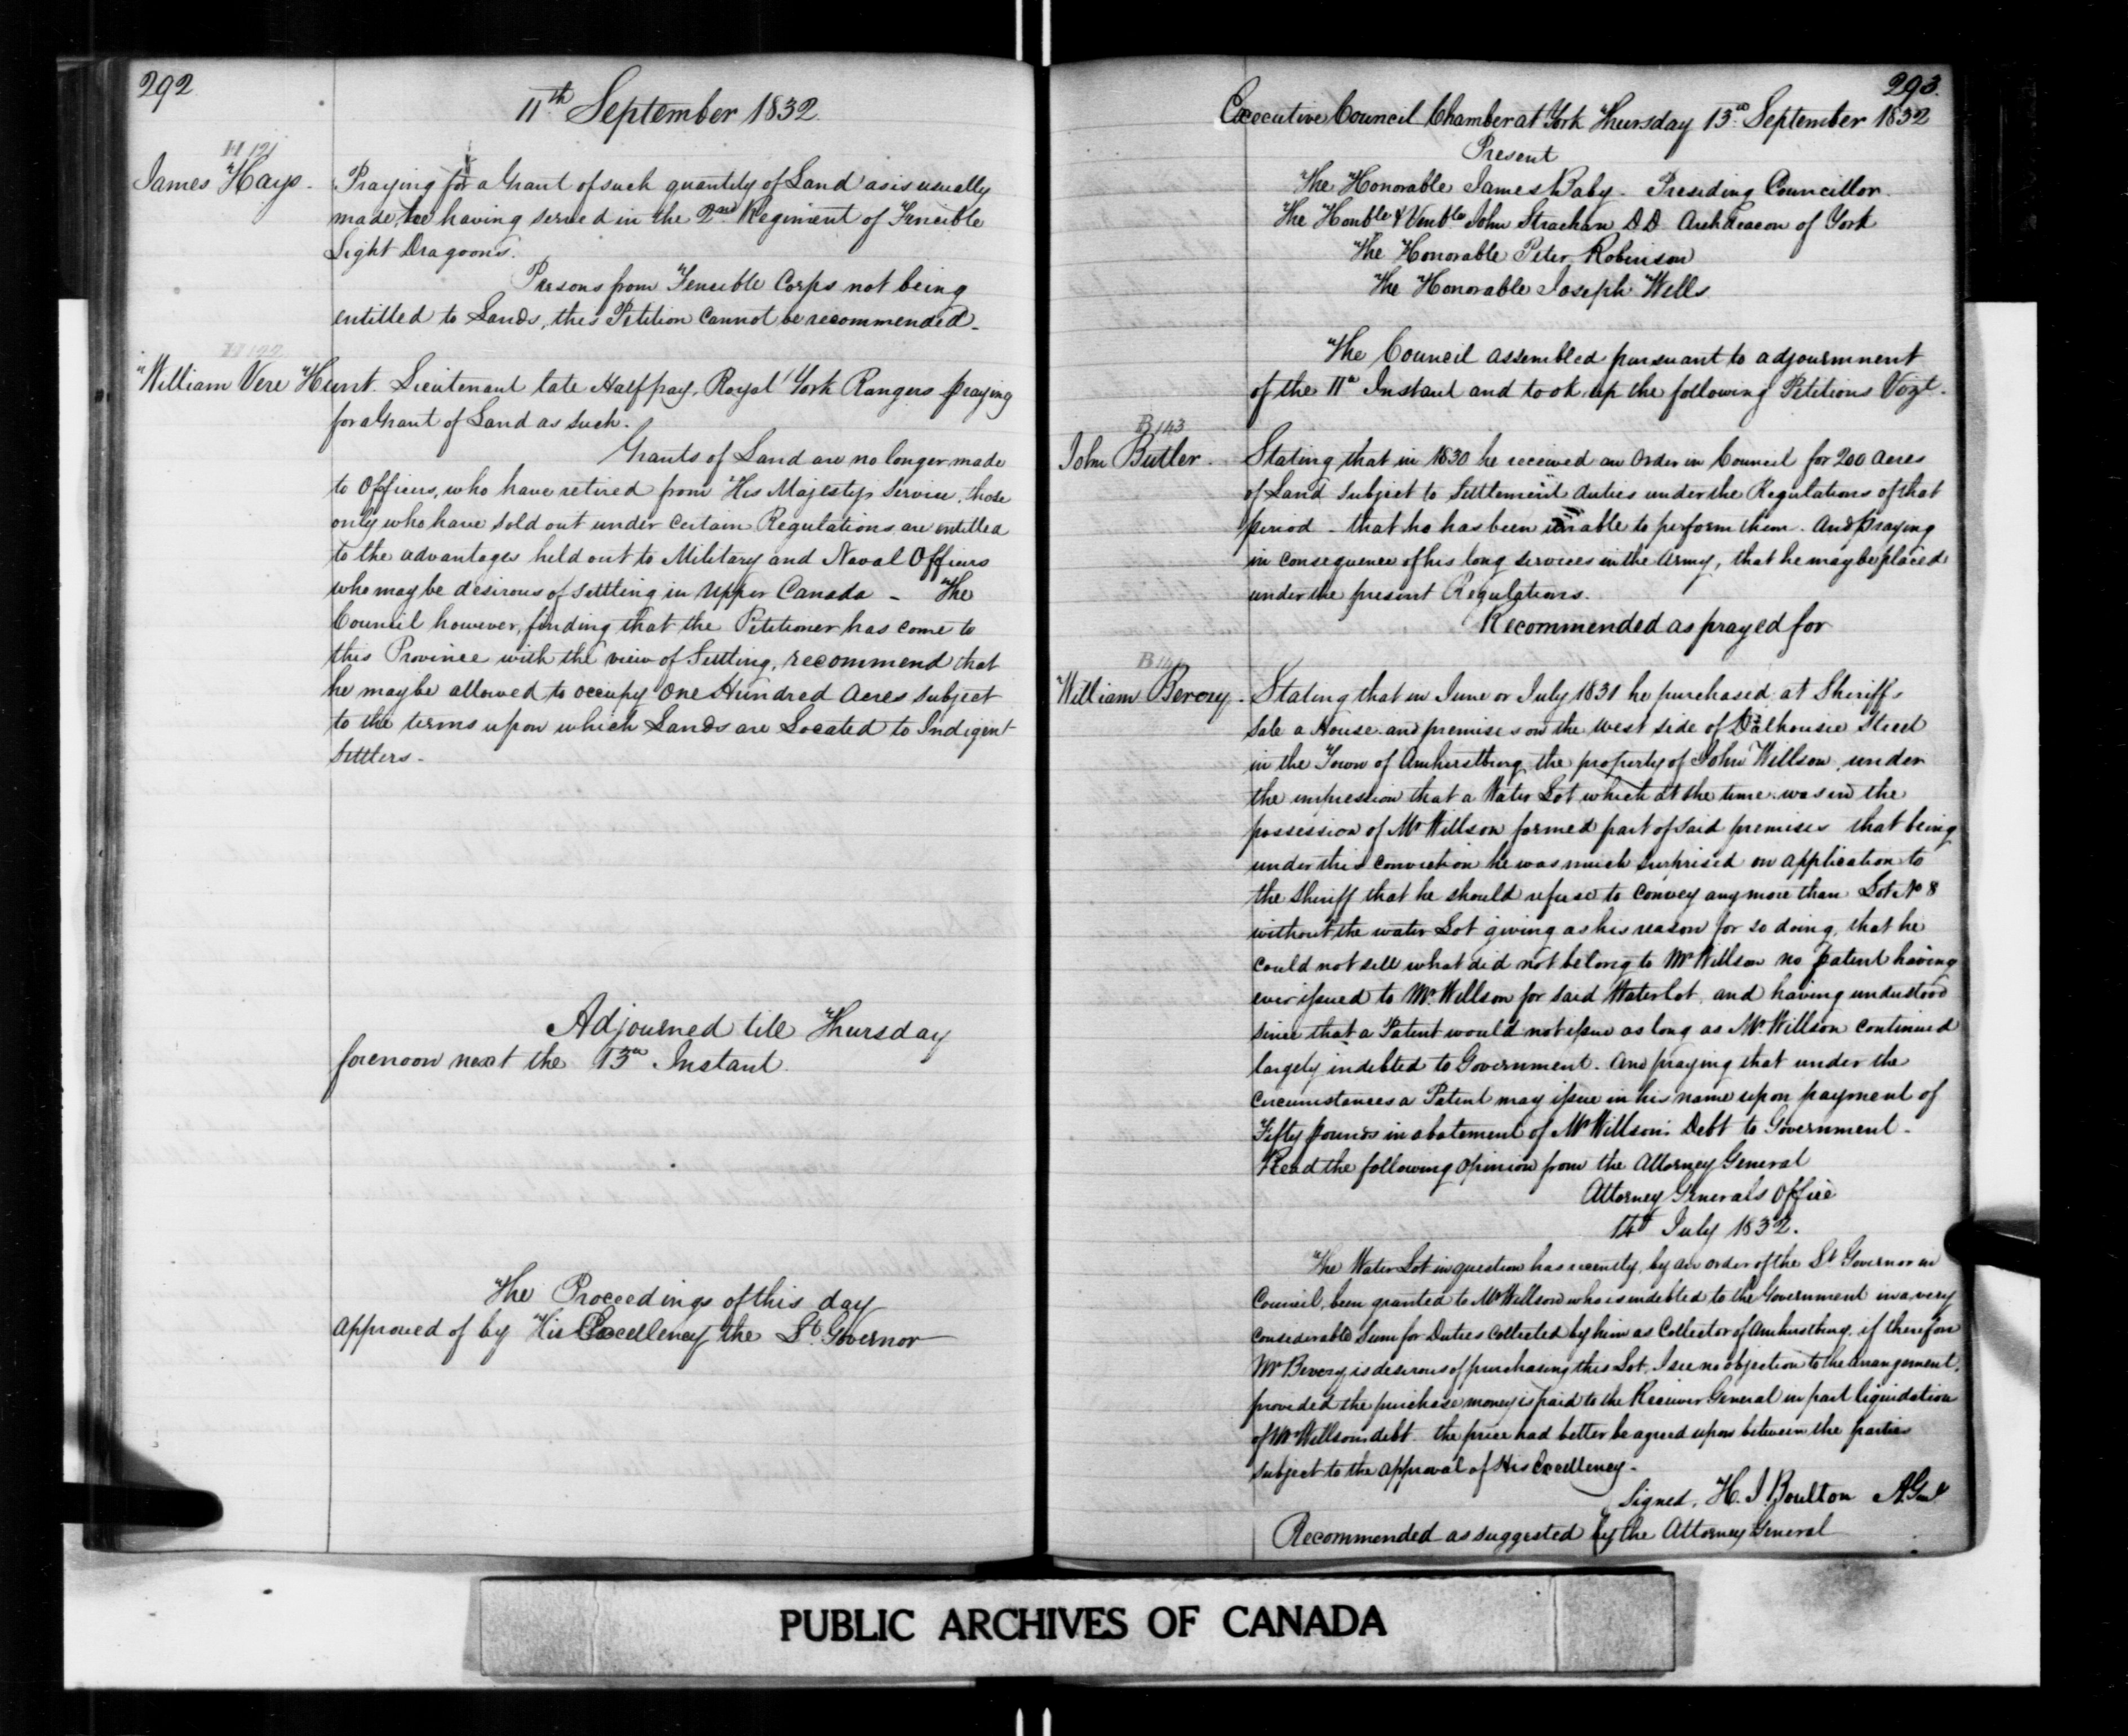 292
11th September 1832.
H 121
James Hays. Praying for a Grant of such quantity of Land as is usually
made, he having served in the 2nd Regiment of Fencible
Light Dragoons.
Persons from Fencible Corps not being
entitled to Lands, this Petition cannot be recommended.
H 122
William Vere Hunt. Lieutenant late Halfpay, Royal York Rangers praying
for a Grant of Land as such.
Grants of Land are no longer made
to Officers, who have retired from His Majestys Service, those
only who have sold out under certain Regulations are entitled
to the advantages held out to Military and Naval Officers
who may be desirous of settling in Upper Canada - The
Council however, finding that the Petitioner has come to
this Province with the view of Settling, recommend that
he may be allowed to occupy One Hundred Acres subject
to the terms upon which Lands are Located to Indigent
Settlers.
Adjourned till Thursday
forenoon next the 13th Instant.
The Proceedings of this day
approved of by His Excellency the Lt. Governor
293.
Executive Council Chamber at York Thursday 13th September 1832
Present
The Honorable James Baby - Presiding Councillor
The Honble & Venble John Strachan D D Archdeacon of York
The Honorable Peter Robinson
The Honorable Joseph Wells
The Council assembled pursuant to adjournment
of the 11th Instant and took up the following Petitions Vizt.
B 143
John Butler. Stating that in 1830 he received an Order in Council for 200 acres
of Land subject to Settlement duties under the Regulations of that
period - that he has been unable to perform them. And praying
in consequence of his long services in the Army, that he may be placed
under the present Regulations.
Recommended as prayed for
William Berczy. Stating that in June or July 1831 he purchased at Sheriffs
Sale a House and premises on the West side of Dalhousie Street
in the Town of Amherstburg the property of John Willson, under
the impression that a Water Lot which at the time was in the
possession of Mr Willson formed part of said premises that being
under this conviction he was much surprised on application to
the Sheriff that he should refuse to convey any more than Lot No 8
without the water Lot giving as his reason for so doing, that he
could not sell what did not belong to Mr Willson no Patent having
ever issued to Mr. Willson for said Water lot, and having understood
since that a Patent would not issue as long as Mr. Willson continued
largely indebted to Government. And praying that under the
circumstances a Patent may issue in his name upon payment of
Fifty pounds in abatement of Mr Willson's Debt to Government.
Read the following opinion from the Attorney General
Attorney Generals Office
July 1832.
The Water Lot in question has recently, by an order of the Lt Governor in
Council, been granted to Mr Willson who is indebted to the Government in a very
considerable Sum for Duties collected by him as Collector of Amherstburg, if therefore
Mr Berczy is desirous of purchasing this Lot, I see no objection to the arrangement,
provided the purchase money is paid to the Receiver General in part liquidation
of Mr Willsons debt. the price had better be agreed upon between the parties
subject to the approval of His Excellency.
Signed, H. J. Boulton A. Genl
Recommended as suggested by the Attorney General
PUBLIC ARCHIVES OF CANADA